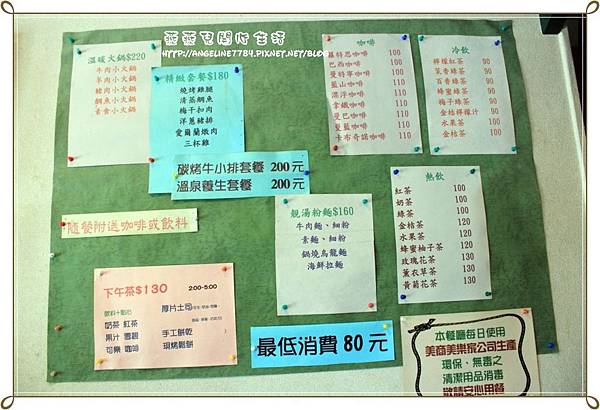 HTTP://ANGELINE7784.PIXNET.NET/BLOG
溫暖火鍋$220
牛肉小火鍋
羊肉小火鍋
豬肉小火鍋
鯛魚小火鍋
素食小火鍋
精緻套餐$180
燒烤雞腿
清蒸鯛魚
梅干扣肉
洋蔥豬排
愛爾蘭燉肉
三杯雞
碳烤牛小排套餐 200元
溫泉養生套餐 200元
咖啡
羅特思咖啡 100
巴西咖啡 100
曼特寧咖啡 110
藍山咖啡 110
漂浮咖啡 110
拿鐵咖啡 110
曼巴咖啡 110
髮藍咖啡 110
卡布奇諾咖啡 110
冷飲
檸檬紅茶 90
茉香綠茶 90
百香綠茶 90
蜂蜜綠茶 90
梅子綠茶 90
金桔檸檬汁 90
水果茶 90
金桔茶 90
隨餐附送咖啡或飲料
靚湯粉麵$160
牛肉麵、細粉
素麵、細粉
鍋燒烏龍麵
海鮮拉麵
熱飲
紅茶 100
奶茶 100
綠茶 100
金桔茶 120
水果茶 120
蜂蜜柚子茶 120
玫瑰花茶 130
薰衣草茶 130
黃菊花茶 130
下午茶$130 2:00-5:00
飲料+點心
奶茶 紅茶
果汁 雪碧
可樂 咖啡
厚片土司
手工餅乾
現烤鬆餅
最低消費 80 元
本餐廳每日使用
美商美樂家公司生產
環保、無毒之
清潔用品消毒
敬請安心用餐